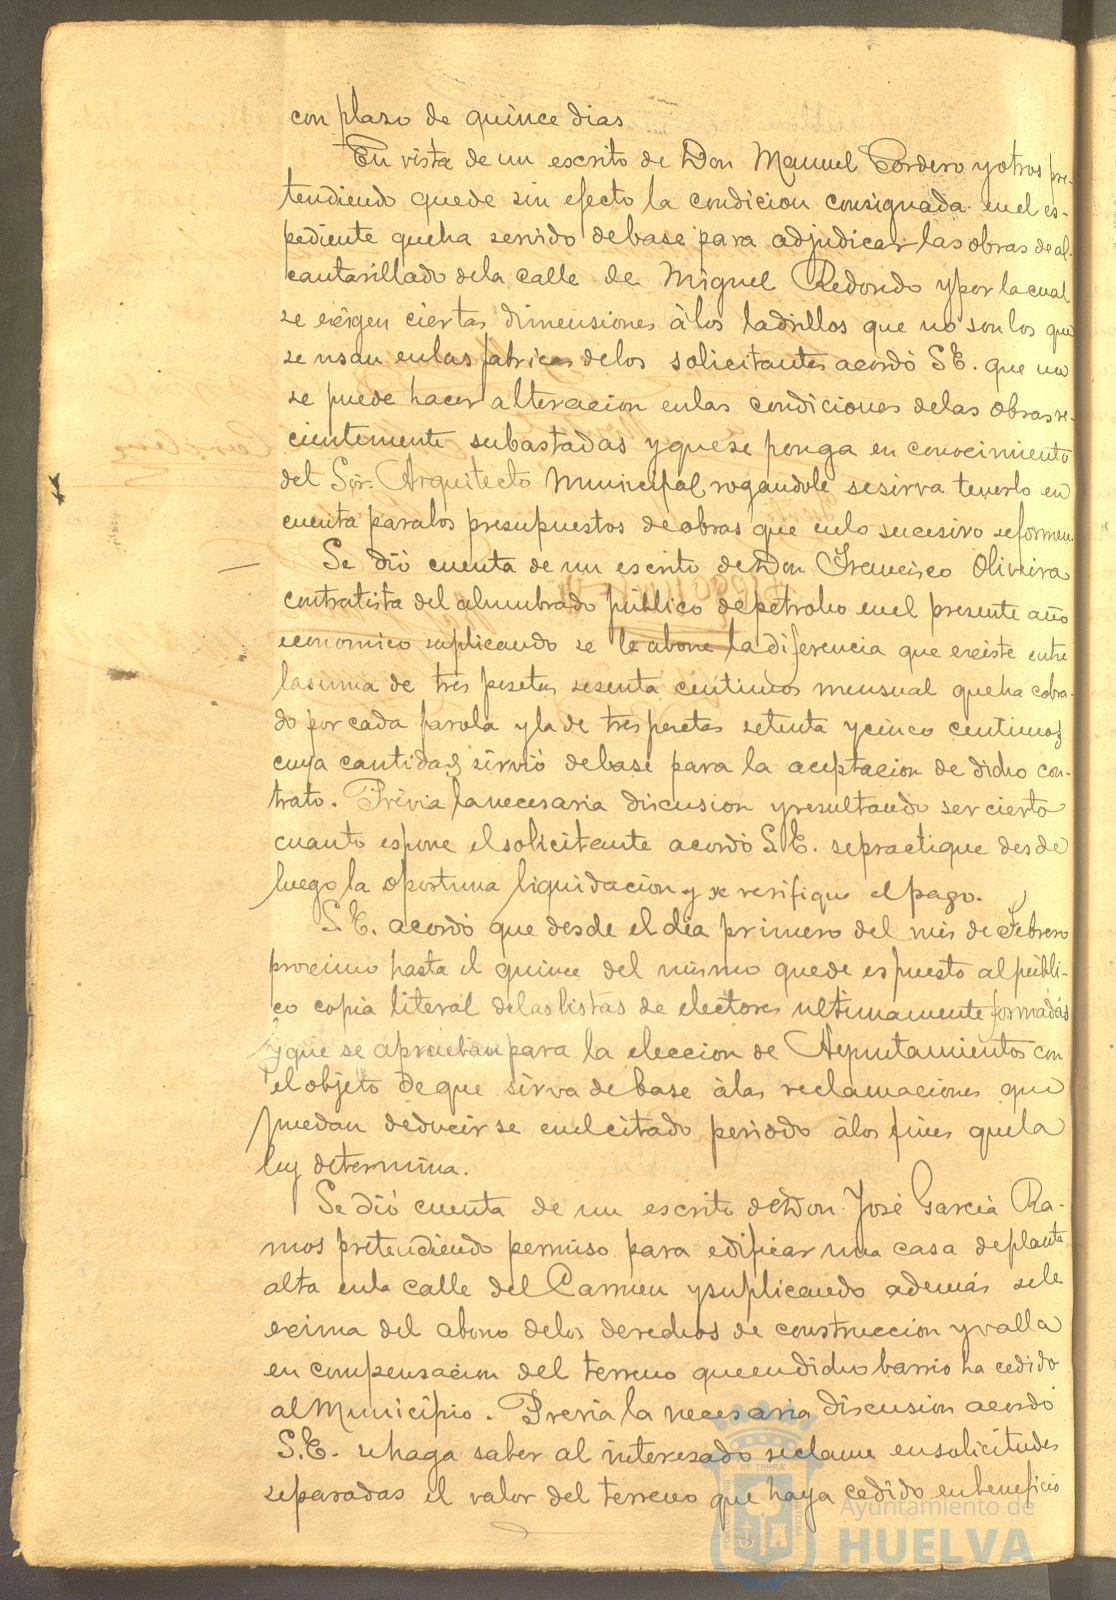 con plazo de quince dias
En vista de un escrito de Don Manuel Cordero y otros pre-
tendiendo quede sin efecto la condicion consignada en el es-
pediente que ha servido de base para adjudicar las obras de al-
cantarillado de la calle de Miguel Redondo y por la cual
se exigen ciertas dimensiones á los ladrillos que no son los que
se usan en las fabricas de los solicitantes acordó S.E. que no
se puede hacer alteracion en las condiciones de las obras re-
cientemente subastadas y que se ponga en conocimiento
del Sör. Arquitecto Municipal rogandole se sirva tenerlo en
cuenta para los presupuestos de obras que en lo sucesivo se formen.
Se dió cuenta de un escrito de Don Francisco Oliveira
contratista del alumbrado público de petroleo en el presente año
economico suplicando se le abone la diferencia que existe entre
la suma de tres pesetas sesenta centimos mensual que ha cobra-
do por cada farola y la de tres pesetas setenta y cinco centimos
cuya cantidad sirvió de base para la aceptacion de dicho con-
trato. Prévia la necesaria discusion y resultando ser cierto
cuanto espone el solicitante acordó S.E. se practique desde
luego la oportuna liquidacion y se verifique el pago.
S.E. acordó que desde el dia primero del mes de Febrero
proximo hasta el quince del mismo quede espuesto al públi-
co copia literal de las listas de electores ultimamente formadas
y que se aprueban para la eleccion de Ayuntamientos con
el objeto de que sirva de base á las reclamaciones que
puedan deducirse en el citado periodo á los fines que la
ley determina.
Se dió cuenta de un escrito de Don José Garcia Ra-
mos pretendiendo permiso para edificar una casa de planta
alta en la calle del Carmen y suplicando además se le
exima del abono de los derechos de construccion y valla
en compensacion del terreno que en dicho barrio ha cedido
al Municipio. Previa la necesaria discusion acordó
S.E. se haga saber al interesado reclame en solicitudes
separadas el valor del terreno que haya cedido en beneficio
Ayuntamiento de
HUELVA